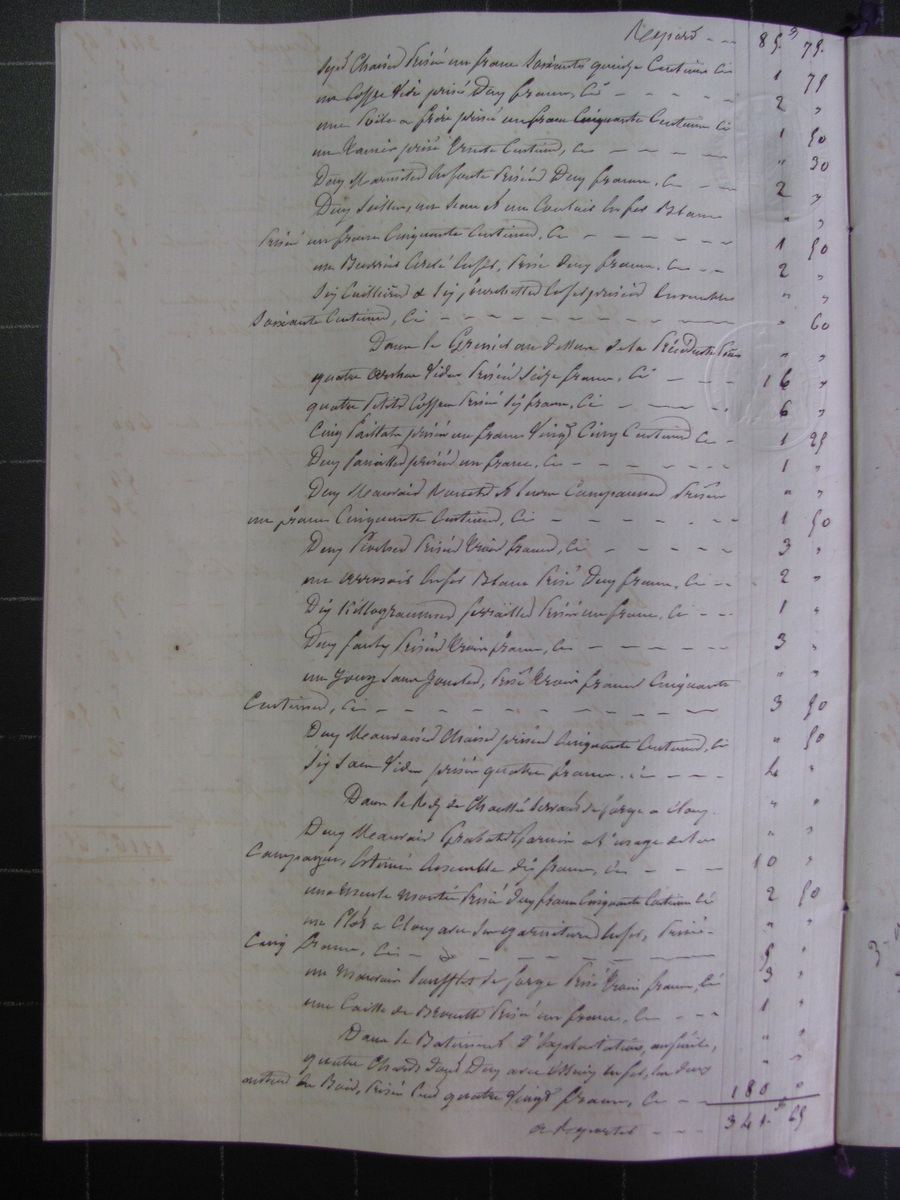 Report - - 85. 75.
Sept Chaises Prisées un franc Soixante quinze Centimes Ci 1 75
un Coffre Vide prisé Deux francs, Ci - - - - - 2 "
une Poële a frire prisée un franc Cinquante Centimes Ci 1 50
un Panier prisé Trente Centimes, Ci - - - - " 30
Deux Marmites En fonte Prisées Deux francs, Ci - - 2 "
Deux Seilles, un Seau et un Couloir En fer Blanc " "
Prisés un franc Cinquante Centimes, Ci - - - - - - 1 50
une Cerclé En fer, Prisé Deux francs, Ci - - 2 "
Six Cuillières & Six fourchettes En fer prisées Ensemble " "
Soixante Centimes, Ci - - - - - - - - - - " 60
Dans le Grenier au Dessus de la Précédente " "
quatre Vides Prisées Seize francs, Ci - - - - 16 "
quatre Petits Coffres Prisés Six francs, Ci - - - - 6 "
Cinq prisés un franc Vingt Cinq Centimes Ci - 1 25
Deux prisées un franc, Ci - - - - - - 1 "
Deux Mauvais et Leurs Prisés " "
un franc Cinquante Centimes, Ci - - - - - - 1 50
Deux Prisés Trois francs, Ci - - - - - 3 "
un arrosoir En fer Blanc Prisé Deux francs, Ci - - 2 "
Dix Killogrammes ferrailles Prisés un franc, Ci - - 1 "
Deux faulx Prisées Trois francs, Ci - - - - - 3 "
un Joug Sans Prisé Trois francs Cinquante " "
Centimes, Ci - - - - - - - - - - - 3 50
Deux Mauvaises Chaises prisées Cinquante Centimes, Ci " 50
Six Sacs Vides prisés quatre francs, Ci - - - - 4 "
Dans le Rez de Chaussée Servant de forge a Clous " "
Deux Mauvais Grabats Garnis a l'usage de la " "
Campagne, Estimés Ensemble dix francs, Ci - - - - 10 "
une Meule Montée Prisée Deux francs Cinquante Centimes Ci 2 50
une a Clous avec Ses garnitures En fer, Prisée " "
Cinq francs, Ci - - - - - - - - - - 5 "
un Mauvais Soufflet de forge Prisé Trois francs, Ci 3 "
une Caisse de Brouette Prisée un franc, Ci - - - 1 "
Dans le Batiment D'Exploitation, ensuite, " "
quatre Chards Dont Deux avec Essieux En fer, les Deux " "
autres En Bois, Prisés Cent quatre Vingt francs, Ci - - 180 "
a Reporter - - - - 341. 65